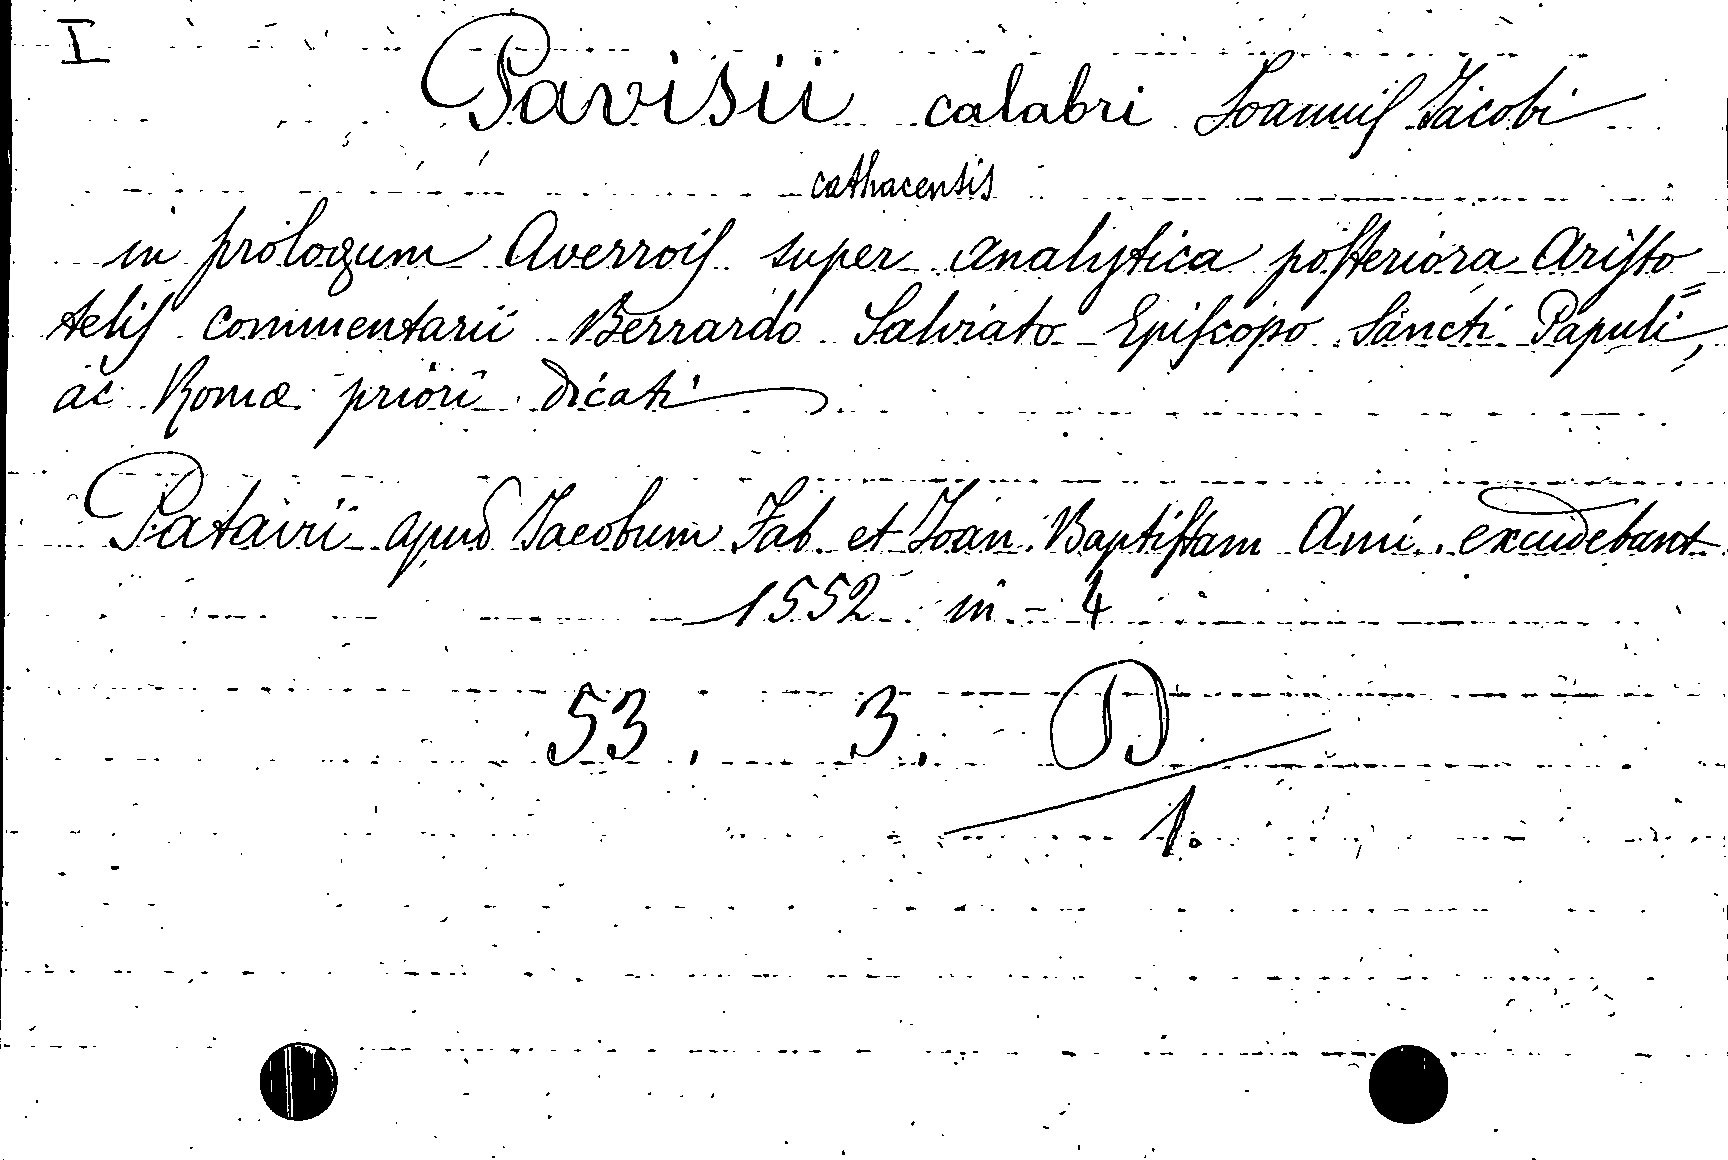 I
Pavisii calabri Ioannis Iacobi
cathacensis
in prologum Averrois super analytica posteriora Aristo=
telis commentarii Berrardo Salviato Episcopo Sancti Papuli,
ac Romæ priori dicati
Patavii apud Iacobum Fab. et Ioan. Baptistam Ami. excudebant
1552 in-4
53. 3. D
1.